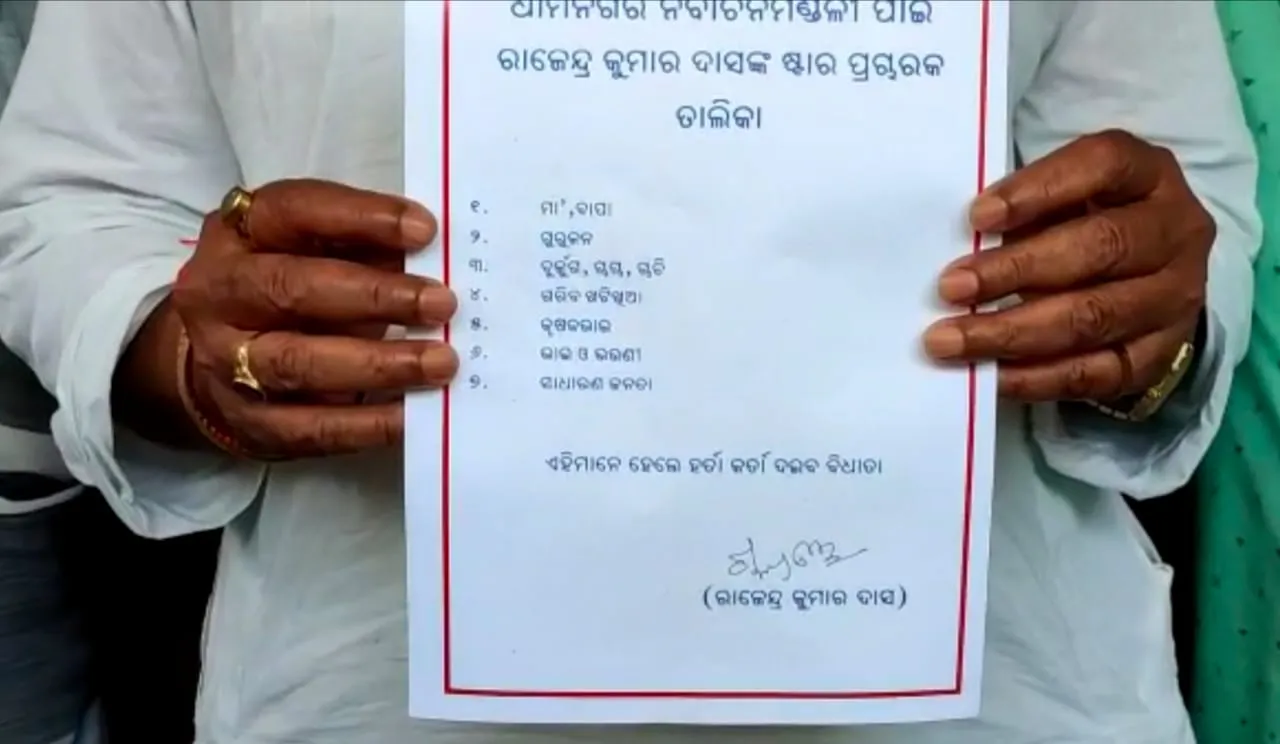 ଧାମନଗର ନିର୍ବାଚନମଣ୍ଡଳୀ ପାଇଁ
ରାଜେନ୍ଦ୍ର କୁମାର ଦାସଙ୍କ ଷ୍ଟାର ପ୍ରଚାରକ
ତାଲିକା
୧. ମା',ବାପା
୨. ଗୁରୁଜନ
୩.
୪. ଗରିବ ଖଟିଖିଆ
୫. କୃଷକଭାଇ
୬. ଭାଇ ଓ ଭଉଣୀ
୭. ସାଧାରଣ ଜନତା
ଏହିମାନେ ହେଲେ ହର୍ତା କର୍ତା ଦଇବ ବିଧାତା
(ରାଜେନ୍ଦ୍ର କୁମାର ଦାସ)